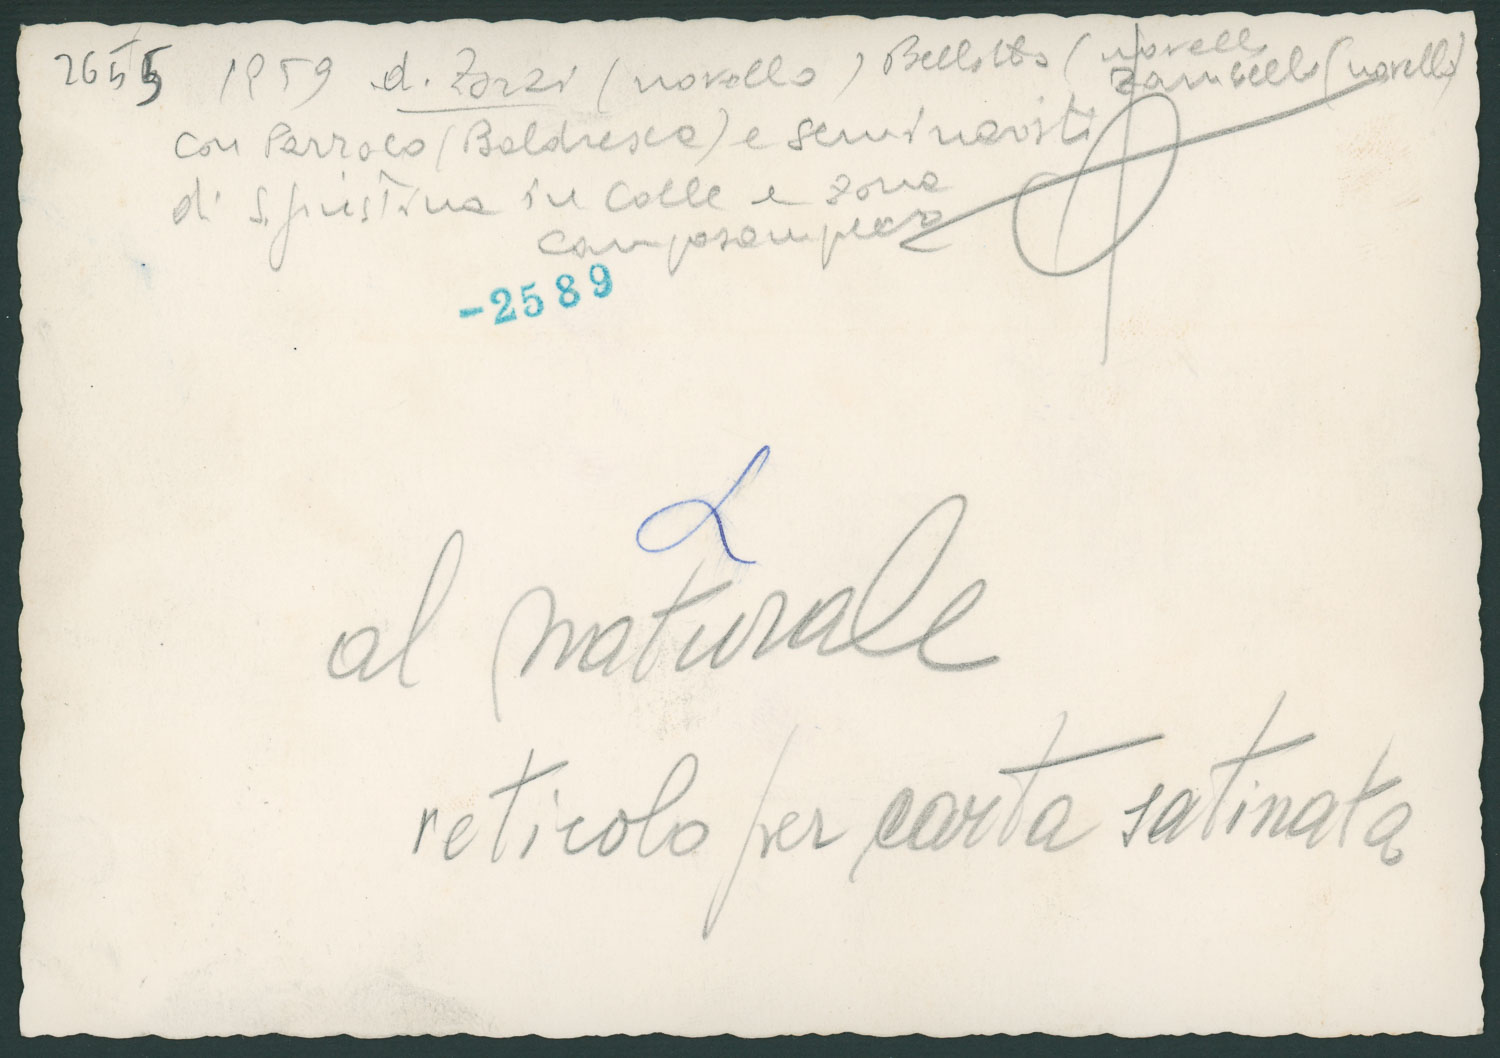 2655 1959 d. Zorzi (novello) Bellotto (novello
Zambello (novello)
con Parroco (Baldressa) e seminaristi
di S. Giustina in Colle e zona
camposampiero
-2589
al naturale
reticolo per carta satinata